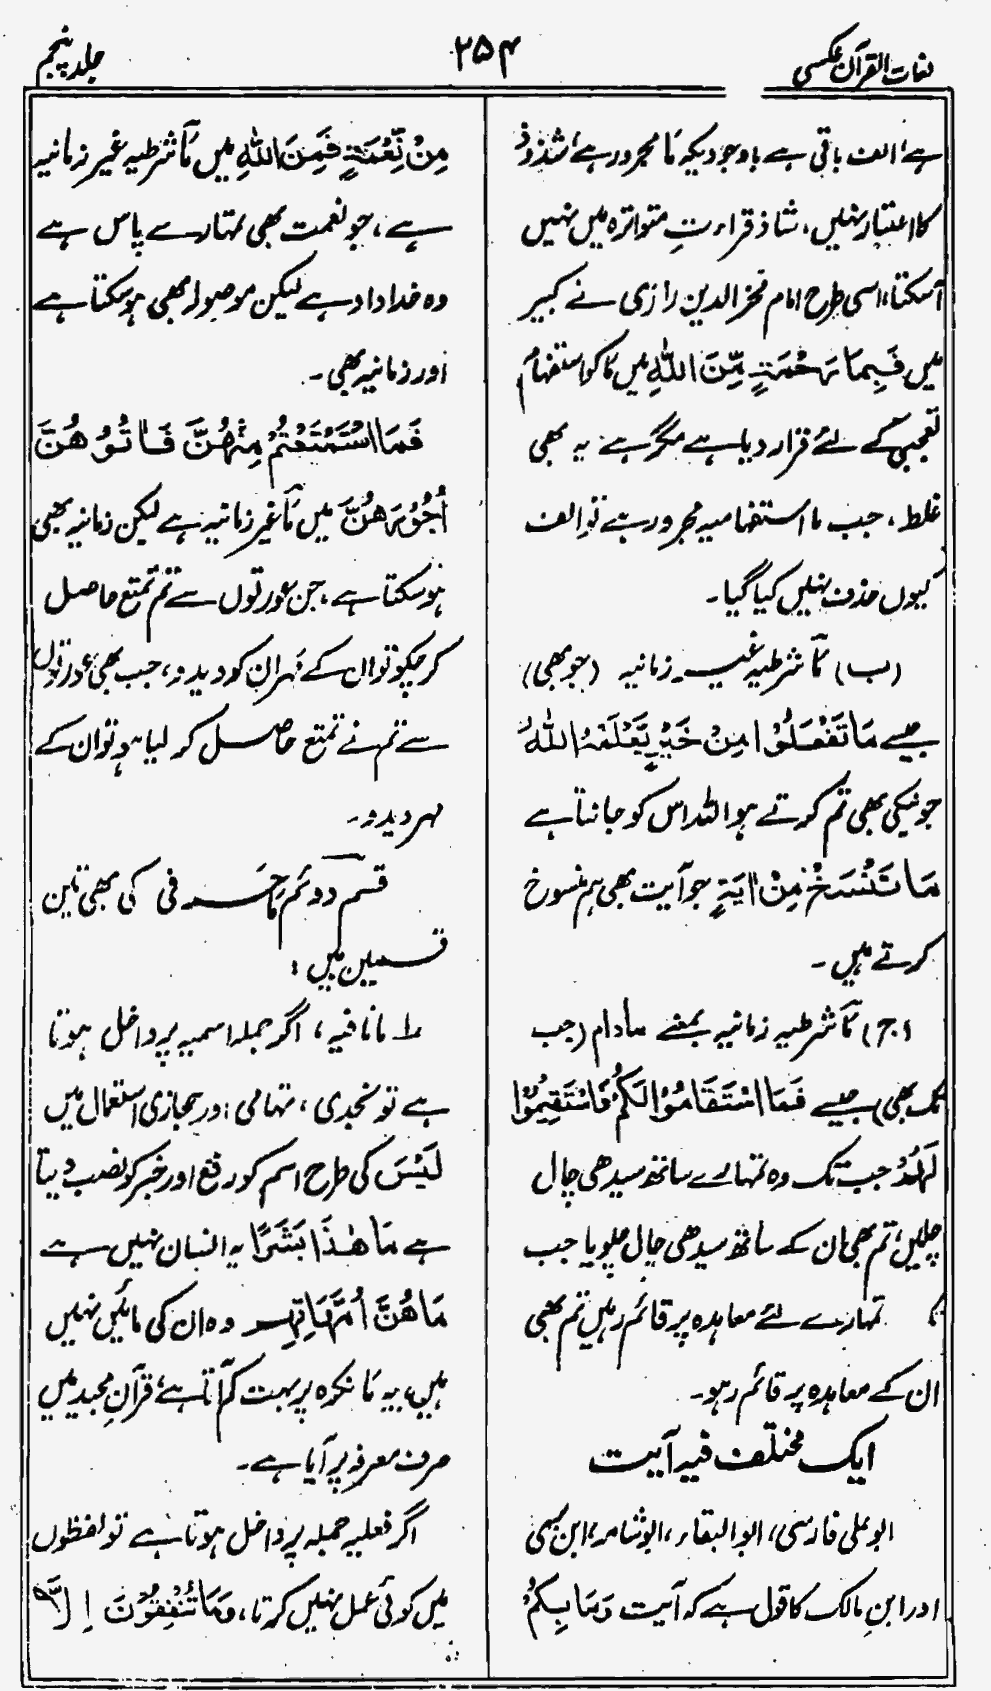 لغات القرآن عکسی
۲۵۴
جلد پنجم
ہے، الف باقی ہے باوجودیکہ مَا مجرور ہے، شذوذ
کا اعتبار نہیں، شاذ قراءتِ متواترہ میں نہیں
آسکتا، اسی طرح امام فخر الدین رازی نے کبیر
میں فَبِمَا رَحْمَةٍ مِّنَ اللّٰهِ میں مَا کو استفہام
تعجبی کے لئے قرار دیا ہے مگر ہے یہ بھی
غلط، جب ما استفہامیہ مجرور ہے تو الف
کیوں حذف نہیں کیا گیا۔
(ب) مَا شرطیہ غیر زمانیہ (جو بھی)
جیسے مَا تَفْعَلُوْا مِنْ خَيْرٍ يَّعْلَمْهُ اللّٰهُ
جو نیکی بھی تم کرتے ہو اللہ اس کو جانتا ہے
مَا نَنْسَخْ مِنْ اٰيَةٍ جو آیت بھی ہم منسوخ
کرتے ہیں۔
(ج) مَا شرطیہ زمانیہ بمعنے مادام (جب
تک بھی) جیسے فَمَا اسْتَقَامُوْا لَكُمْ فَاسْتَقِيْمُوْا
لَهُمْ جب تک وہ تمہارے ساتھ سیدھی چال
چلیں، تم بھی ان کے ساتھ سیدھی چال چلو یا جب
تک تمہارے لئے معاہدہ پر قائم رہیں تم بھی
ان کے معاہدہ پر قائم رہو۔
ایک مختلف فیہ آیت
ابو علی فارسی، ابو البقاء، ابو شامہ، ابن بری
اور ابنِ مالک کا قول ہے کہ آیت وَمَا بِكُمْ
مِنْ نِّعْمَةٍ فَمِنَ اللّٰهِ میں مَا شرطیہ غیر زمانیہ
ہے، جو نعمت بھی تمہارے پاس ہے
وہ خداداد ہے لیکن موصولہ بھی ہوسکتا ہے
اور زمانیہ بھی۔
فَمَا اسْتَمْتَعْتُمْ مِنْهُنَّ فَاٰتُوْهُنَّ
اُجُوْرَهُنَّ میں مَا غیر زمانیہ ہے لیکن زمانیہ بھی
ہوسکتا ہے، جن عورتوں سے تم تمتع حاصل
کر چکو تو ان کے مہر ان کو دیدو، جب بھی عورتوں
سے تم نے تمتع حاصل کر لیا ہو تو ان کے
مہر دیدو۔
قسم دوئم مَا حرفی کی بھی تین
قسمیں ہیں :
۱ مَا نافیہ، اگر جملہ اسمیہ پر داخل ہوتا
ہے تو نجدی، تہامی اور حجازی استعمال میں
لَيْسَ کی طرح اسم کو رفع اور خبر کو نصب دیتا
ہے مَا هٰذَا بَشَرًا یہ انسان نہیں ہے
مَا هُنَّ اُمَّهَاتِهِمْ وہ ان کی مائیں نہیں
ہیں، یہ مَا نکرہ پر بہت کم آتا ہے، قرآن مجید میں
صرف معرفہ پر آیا ہے۔
اگر فعلیہ جملہ پر داخل ہوتا ہے تو لفظوں
میں کوئی عمل نہیں کرتا، وَمَا تُنْفِقُوْنَ اِلَّا